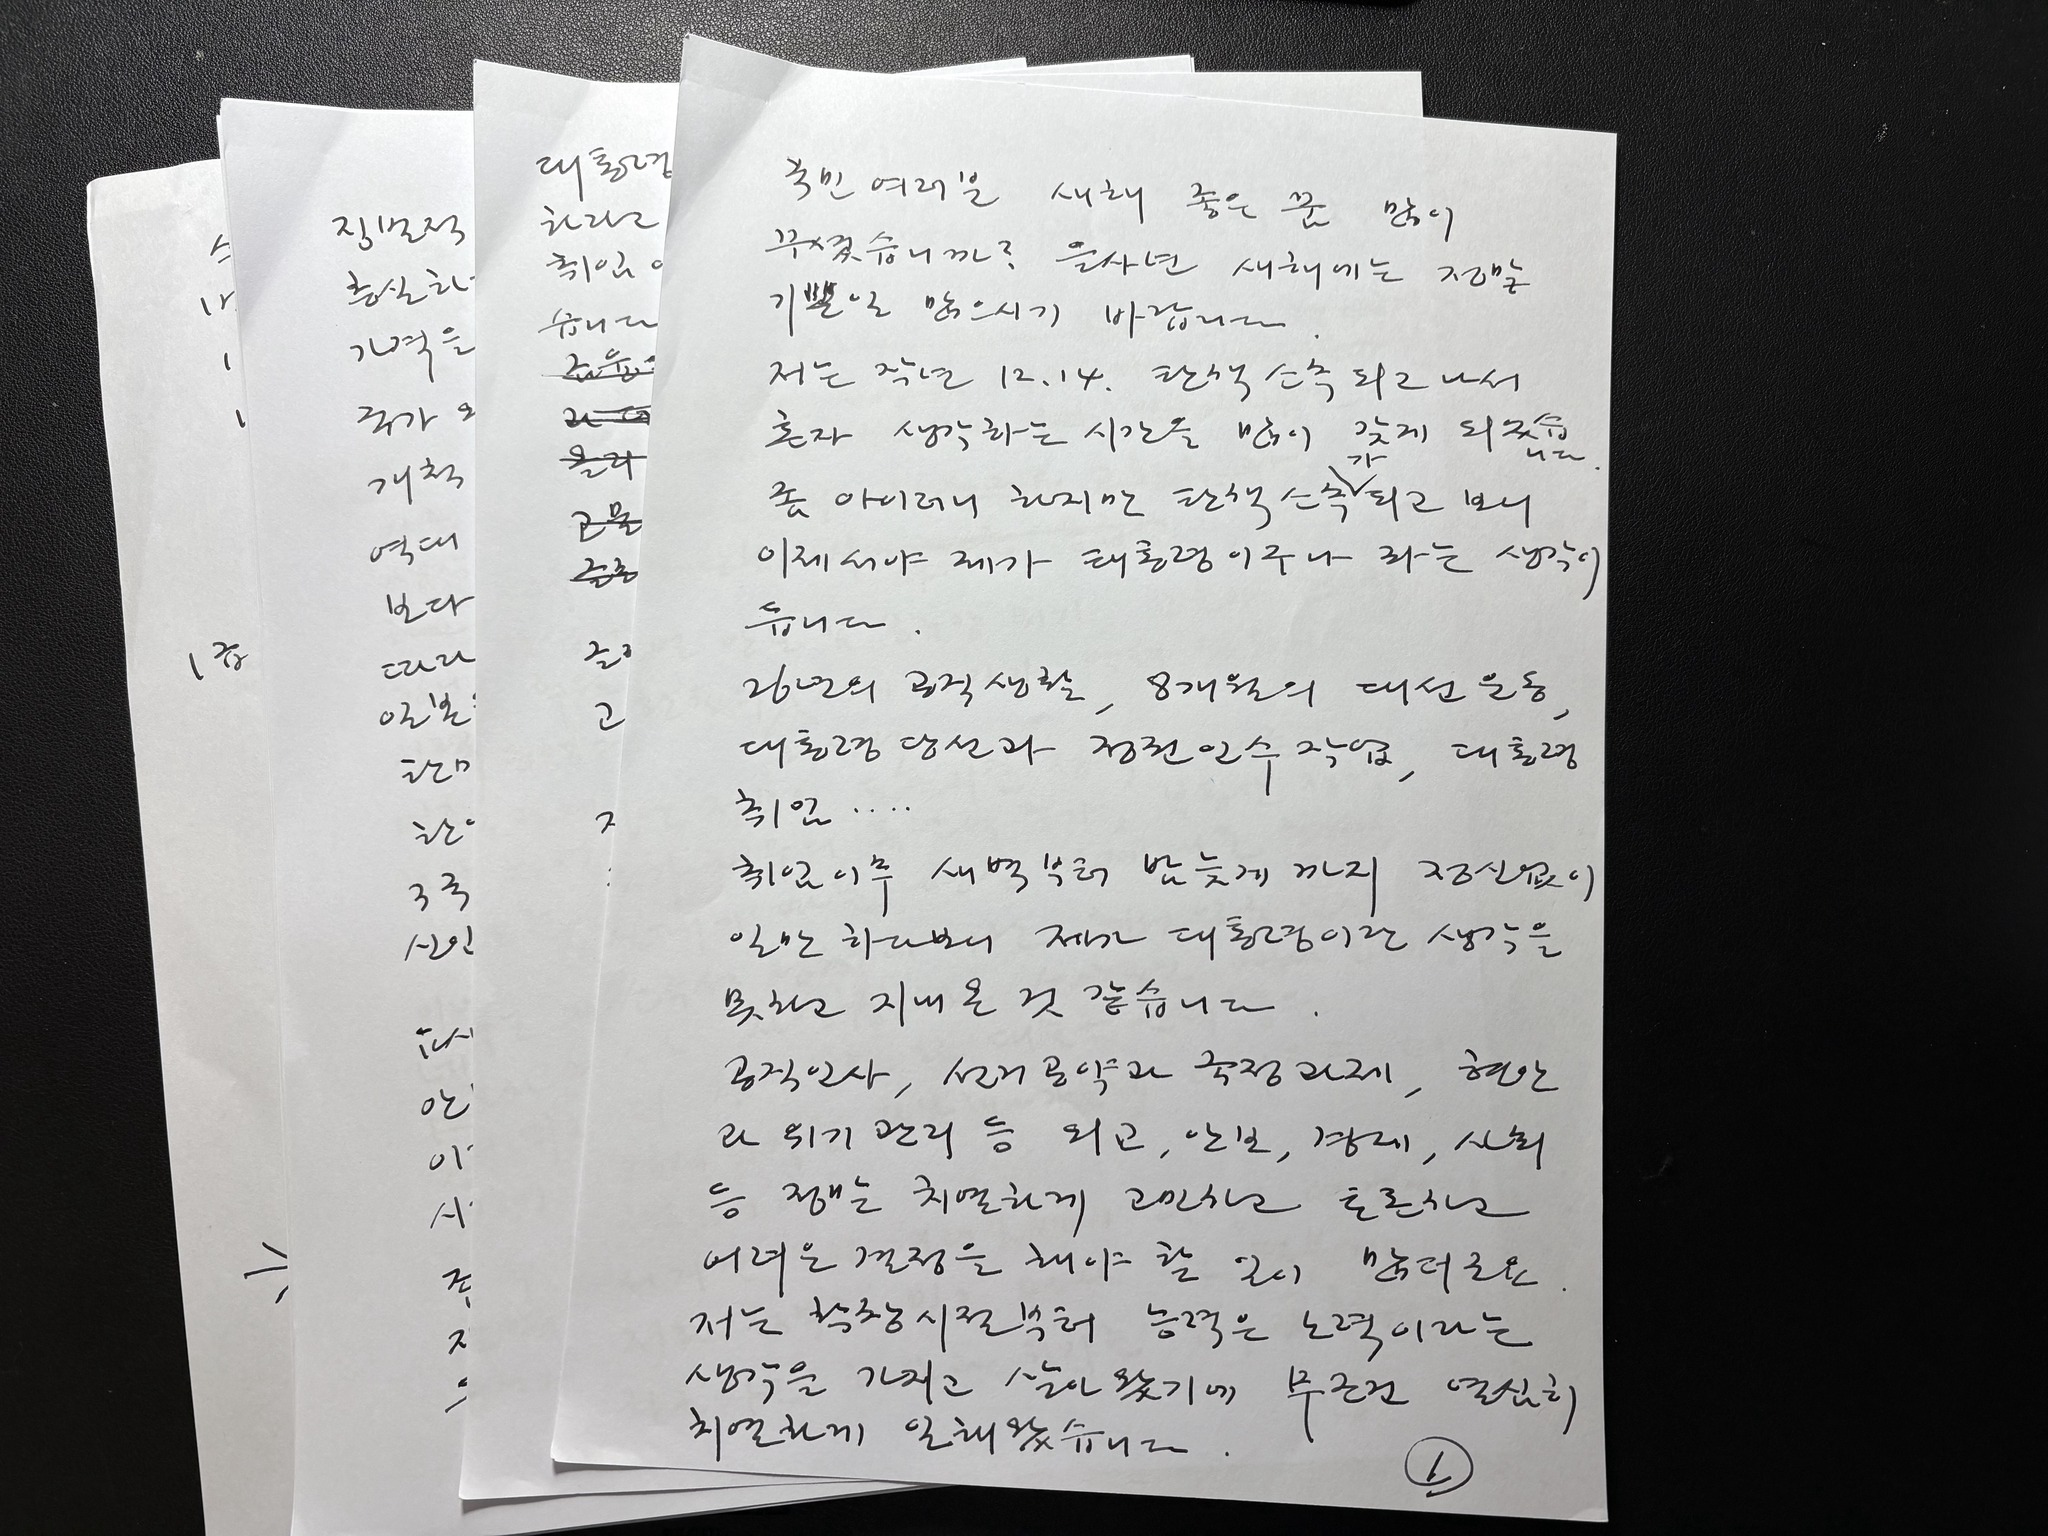 국민 여러분 새해 좋은 꿈 많이
꾸셨습니까? 을사년 새해에는 정말
기쁜일 많으시기 바랍니다.
저는 작년 12.14. 탄핵 소추되고 나서
혼자 생각하는 시간을 많이 갖게 되었습니다.
좀 아이러니 하지만 탄핵소추가 되고 보니
이제서야 제가 대통령이구나 라는 생각이
듭니다.
26년의 공직생활, 8개월의 대선 운동,
대통령 당선과 정권 인수 작업, 대통령
취임 ....
취임이후 새벽부터 밤늦게 까지 정신없이
일만 하다보니 제가 대통령이란 생각을
못하고 지내온 것 같습니다.
공직인사, 선거공약과 국정과제, 현안
과 위기관리 등 외교, 안보, 경제, 사회
등 정말 치열하게 고민하고 토론하고
어려운 결정을 해야 할 일이 많더군요.
저는 학창시절부터 능력은 노력이라는
생각을 가지고 살아왔기에 무조건 열심히
치열하게 일해왔습니다.
1
대통령
하라고
취임
습니다
고
집법적
충실하
가격을
국가
개척
역대
보다
따라
일본
한미
3국